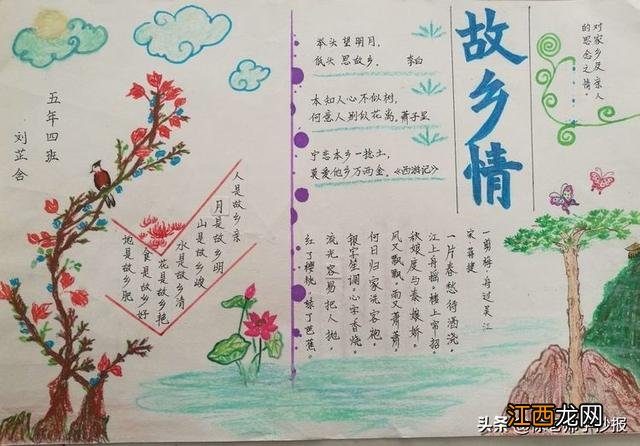 故乡情
对家乡及亲人
的思念之情。
举头望明月，
低头思故乡。 李白
本知人心不似树，
何意人别似花离 萧子显
宁恋本乡一捻土，
莫爱他乡万两金。《西游记》
五年四班
刘芷含
人是故乡亲
月是故乡明
山是故乡峻
水是故乡清
花是故乡艳
食是故乡好
地是故乡肥
一剪梅·舟过吴江
宋 蒋捷
一片春愁待酒浇，
江上舟摇，楼上帘招。
秋娘度与泰娘娇，
风又飘飘，雨又萧萧，
何日归家洗客袍，
银字笙调，心字香烧，
流光容易把人抛，
红了樱桃，绿了芭蕉。
江西龙网